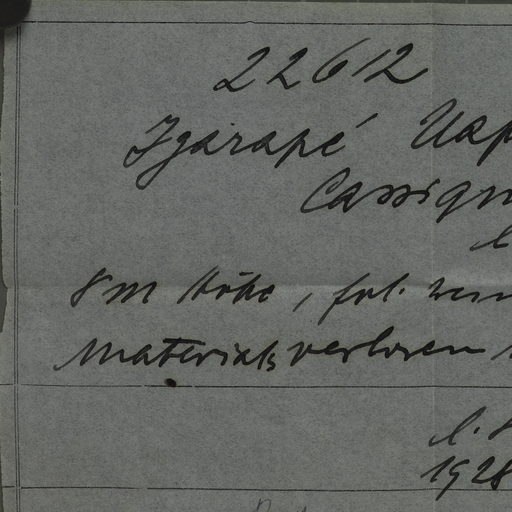 22612
Igarapé Uap
Cassiqu
l
8 m Höhe, fol.
Materials verloren
l.
1928